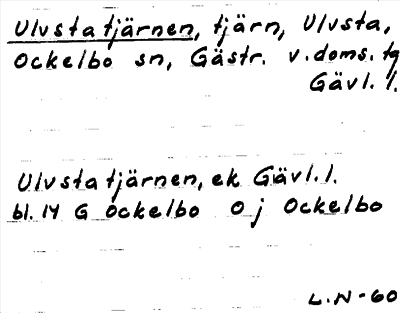 Ulvstatjärnen, tjärn, Ulvsta,
Ockelbo sn, Gästr. v. doms. tg
Gävl. l.
Ulvstatjärnen, ek Gävl. l.
bl. 14 G Ockelbo O j Ockelbo
L.N-60